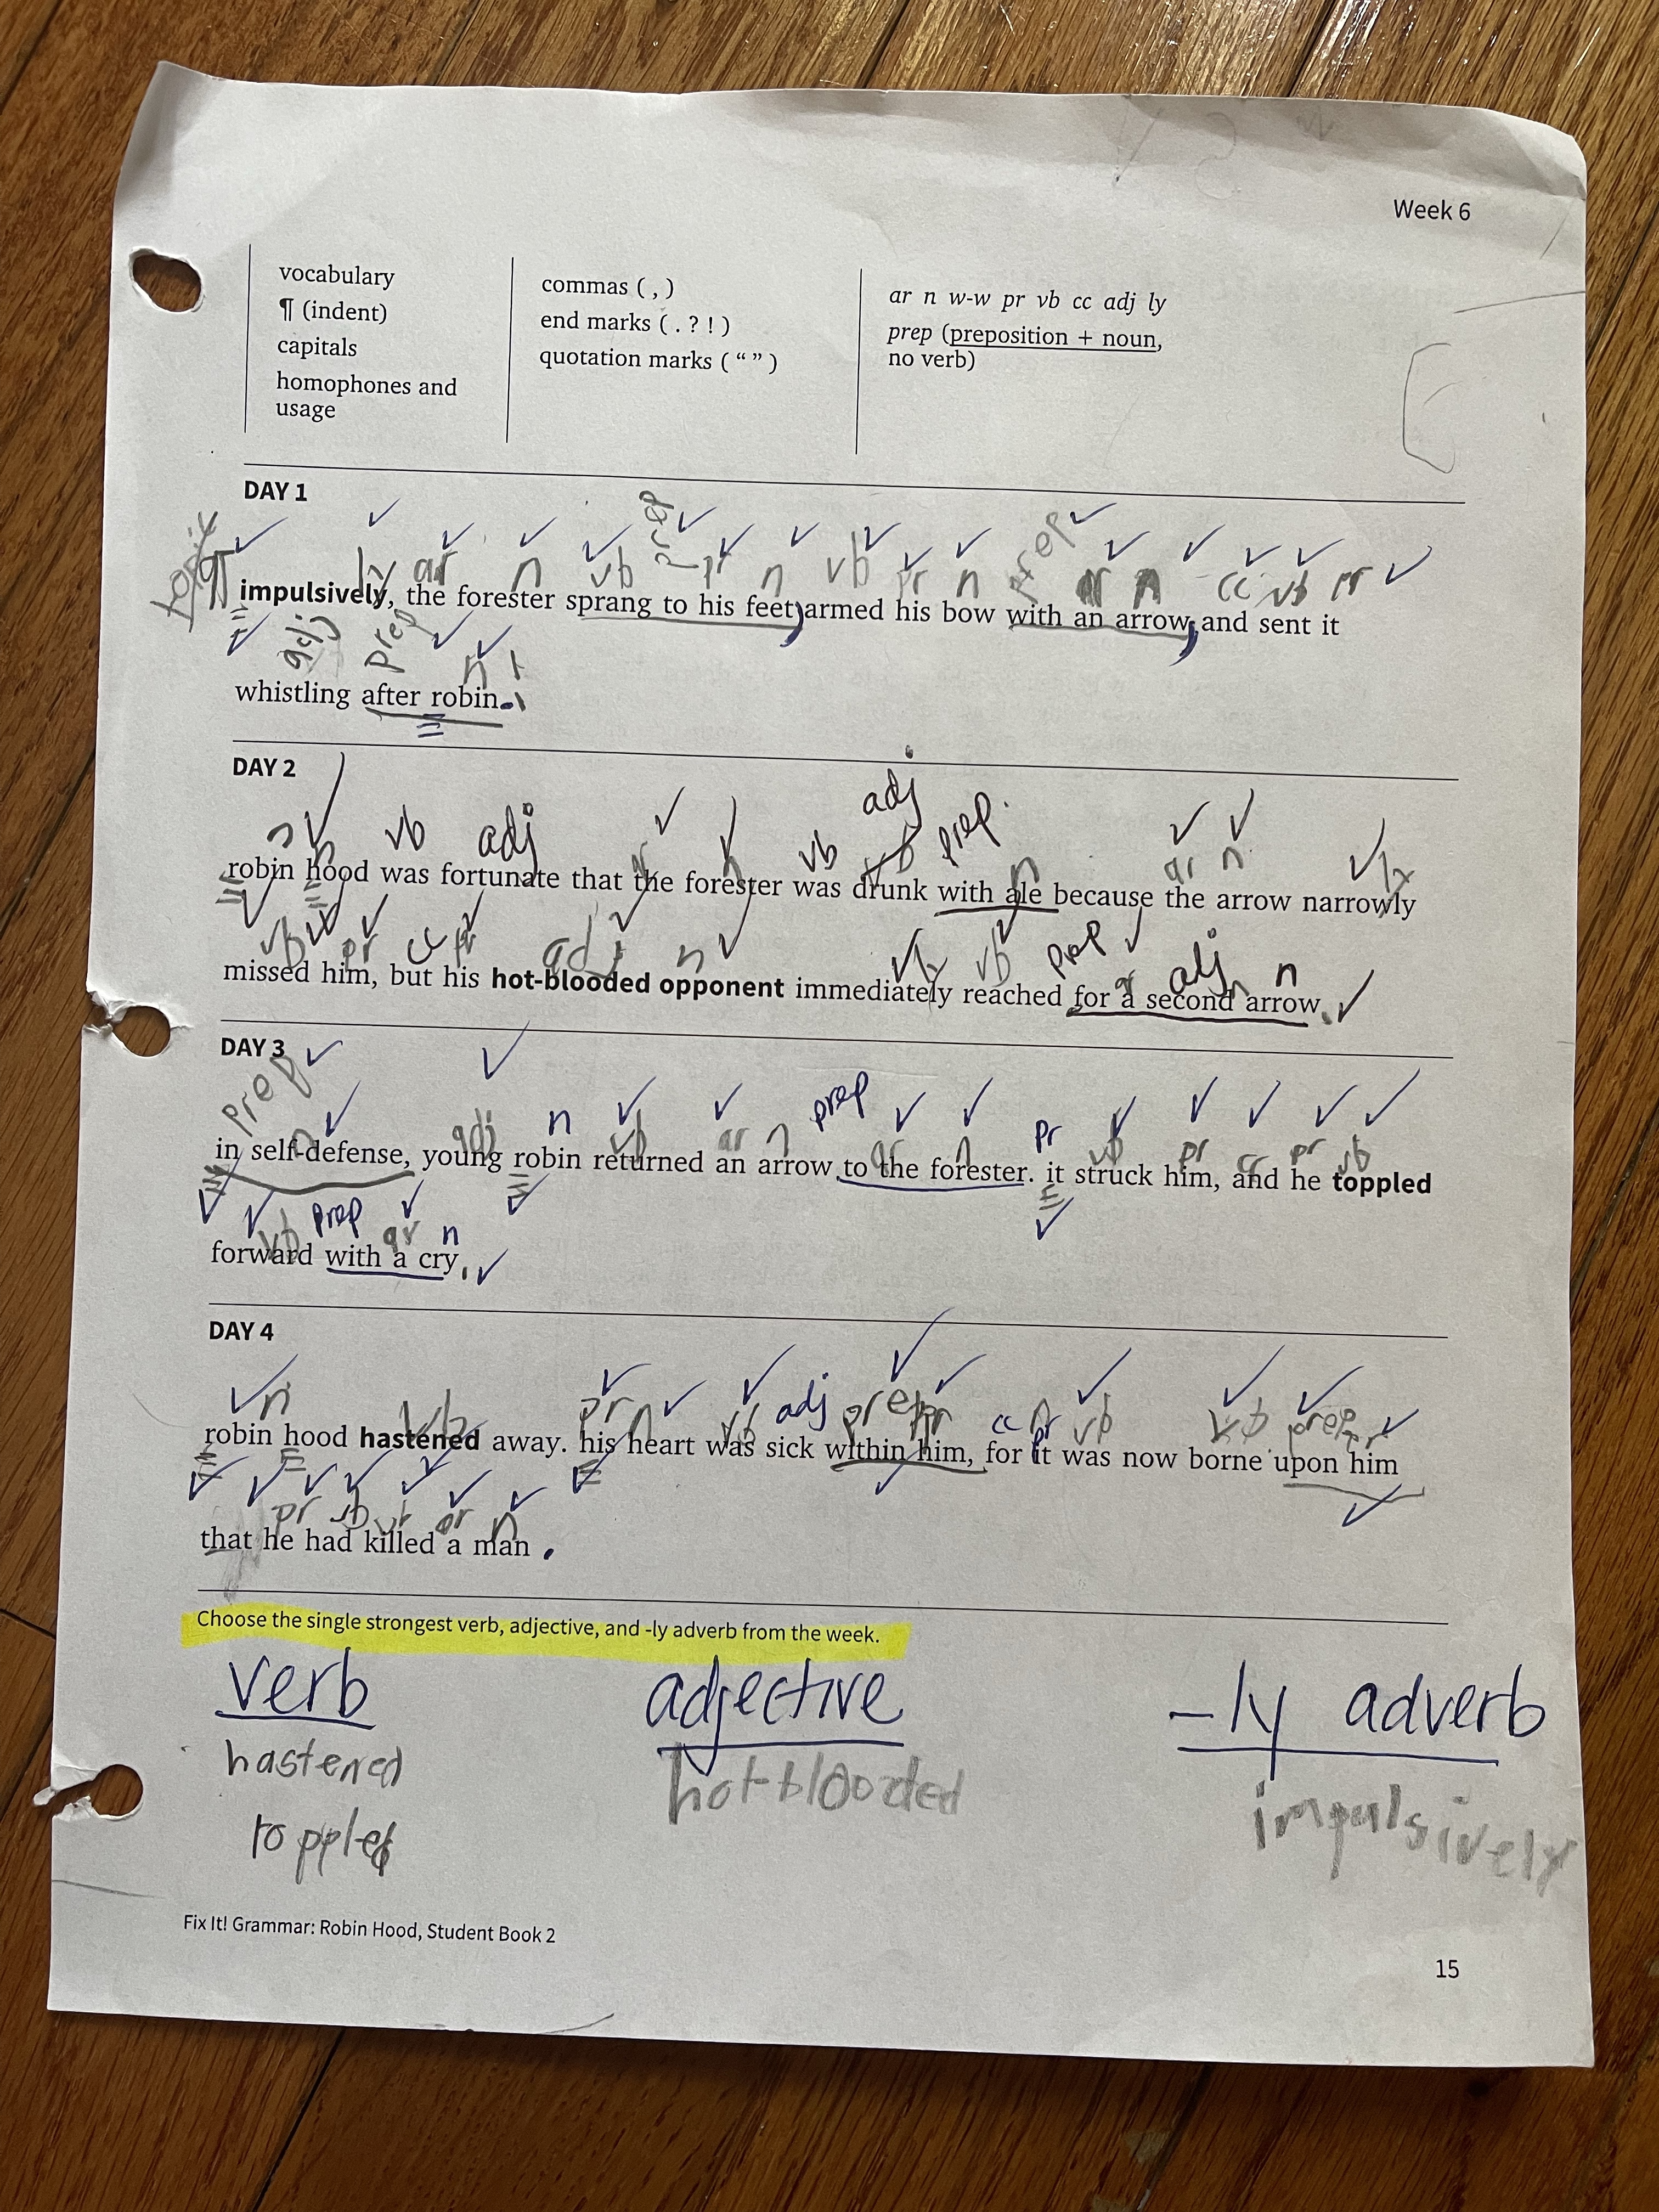 Week 6
vocabulary
¶ (indent)
capitals
homophones and
usage
commas ( , )
end marks ( . ? ! )
quotation marks ( “ ” )
ar n w-w pr vb cc adj ly
prep (preposition + noun,
no verb)
DAY 1
topic ¶ ly ar n vb prep pr n vb pr n prep ar n cc vb pr
impulsively, the forester sprang to his feet, armed his bow with an arrow, and sent it
adj prep n
whistling after robin.
DAY 2
n n vb adj ar n vb adj vb prep n ar n ly
robin hood was fortunate that the forester was drunk with ale because the arrow narrowly
vb pr cc pr adj n ly vb prep ar adj n n
missed him, but his hot-blooded opponent immediately reached for a second arrow.
DAY 3
prep n adj n vb ar n prep ar n pr vb pr cc pr vb
in self-defense, young robin returned an arrow to the forester. it struck him, and he toppled
vb prep ar n
forward with a cry.
DAY 4
n vb pr n vb adj prep pr cc pr vb vb prep pr
robin hood hastened away. his heart was sick within him, for it was now borne upon him
pr vb vb ar n
that he had killed a man.
Choose the single strongest verb, adjective, and -ly adverb from the week.
verb adjective -ly adverb
hastened hot-blooded impulsively
toppled
Fix It! Grammar: Robin Hood, Student Book 2
15